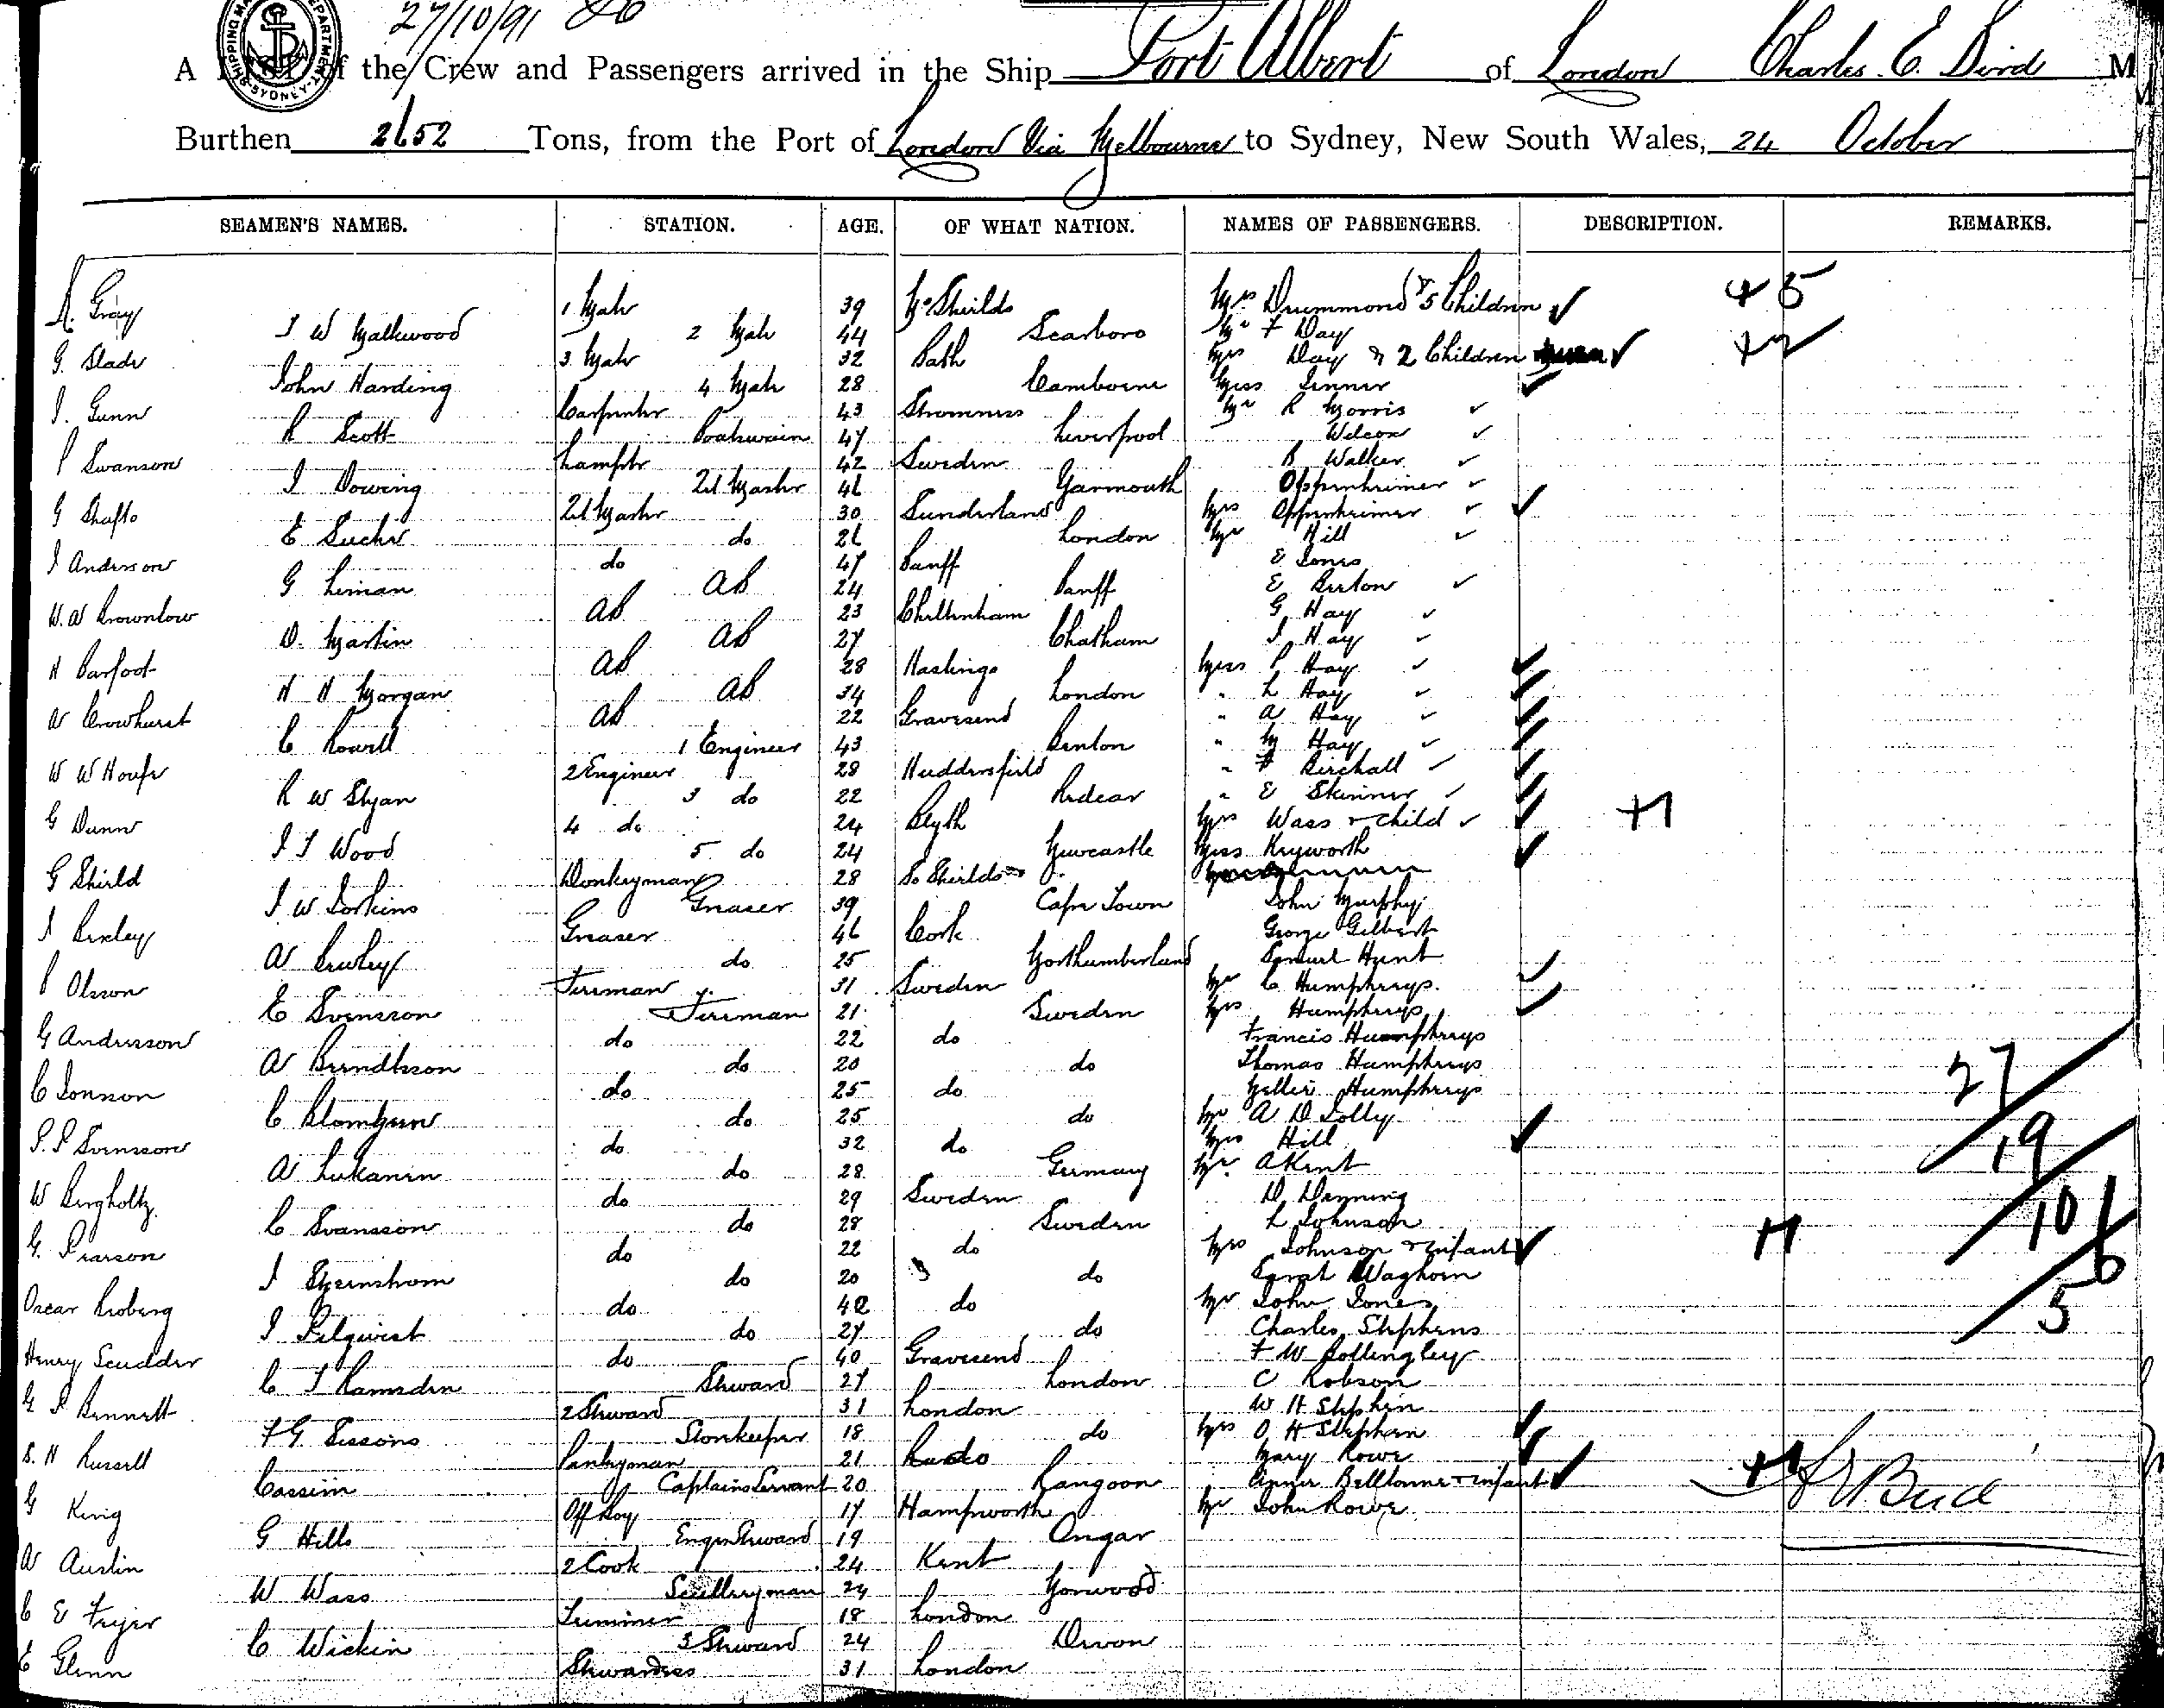 27/10/91
SHIPPING MA EPARTMENT SYDNEY
A List of the Crew and Passengers arrived in the Ship Port Albert of London Charles E. Bird M
Burthen 2652 Tons, from the Port of London Via Melbourne to Sydney, New South Wales, 24 October
SEAMEN'S NAMES. STATION. AGE. OF WHAT NATION. NAMES OF PASSENGERS. DESCRIPTION. REMARKS.
A. Gray 1 Mate 39 No Shields Mrs Drummond & 5 Children +5
J W Malkwood 2 Mate 44 Scarboro Mr F Day
G Slade 3 Mate 32 Bath Mrs Day & 2 Children +2
John Harding 4 Mate 28 Camborne Miss Jenner
J. Gunn Carpenter 43 Stromness Mr R Morris
R Scott Boatswain 47 Liverpool Wilcox
P Swanson Lamptr 42 Sweden B Walker
J Dowing 2d Master 46 Yarmouth Oppenheimer
G Shafto 2d Master 30 Sunderland Mrs Oppenheimer
E Suche do 26 London Mr Hill
J Anderson do 47 Banff E Jones
G Liman AB 24 Banff E Burton
W. W Brownlow AB 23 Cheltenham G Hay
D. Martin AB 27 Chatham J Hay
H Barfoot AB 28 Hastings Miss P Hay
H H Morgan AB 34 London " L Hay
W Crowhurst AB 22 Gravesend " A Hay
C Rowell 1 Engineer 43 Benton " M Hay
W W Houfe 2 Engineer 28 Huddersfield " F Birchall
R W Styan 3 do 22 Redcar " E Skinner
G Dunn 4 do 24 Blyth Mrs Wass & Child +1
J T Wood 5 do 24 Newcastle Miss Keyworth
G Shield Donkeyman 28 So Shields
J W Dorkins Greaser 39 Cape Town John Murphy
J Bexley Greaser 46 Cork George Gilbert
A Bewley do 25 Northumberland Samuel Hunt
P Olsson Fireman 31 Sweden Mr C Humphreys
E Svensson Fireman 21 Sweden Mrs Humphreys
G Andersson do 22 do Francis Humphreys
A Berndtsson do 20 do Thomas Humphreys
C Jonson do 25 do Nellie Humphreys 27
C Blomgren do 25 do Mr A D Jolly
P. P Svensson do 32 do Mrs Hill 19
A Lukanen do 28 Germany Mr A Kent
W Bergholtz do 29 Sweden D Denning
C Svansson do 28 Sweden L Johnson 10
G. Pearson do 22 do Mrs Johnson & infant +1 6
J Stjernstrom do 20 do Sarah Waghorn
Oscar Broberg do 42 do Mr John Jones 5
J Liljqvist do 27 do Charles Stephens
Henry Scudder do 40 Gravesend F W Bollingley
C J Ramsden Steward 27 London C Robson
G S Bennett 2 Steward 31 London W H Stephen
F G Sissons Storekeeper 18 do Mrs O. H Stephen
S. H Russell Pantryman 21 Mary Rowe
Cassim Captains Servant 20 Rangoon & infant +1
G King Off Boy 17 Hampworth Mr John Rowe
G Hills Engrs Steward 19 Ongar
W Austin 2 Cook 24 Kent
W Wass Sculleryman 24 Norwood
C E Fryer Trimmer 18 London
C Wickin 3 Steward 24 Devon
E Glenn Stewardess 31 London